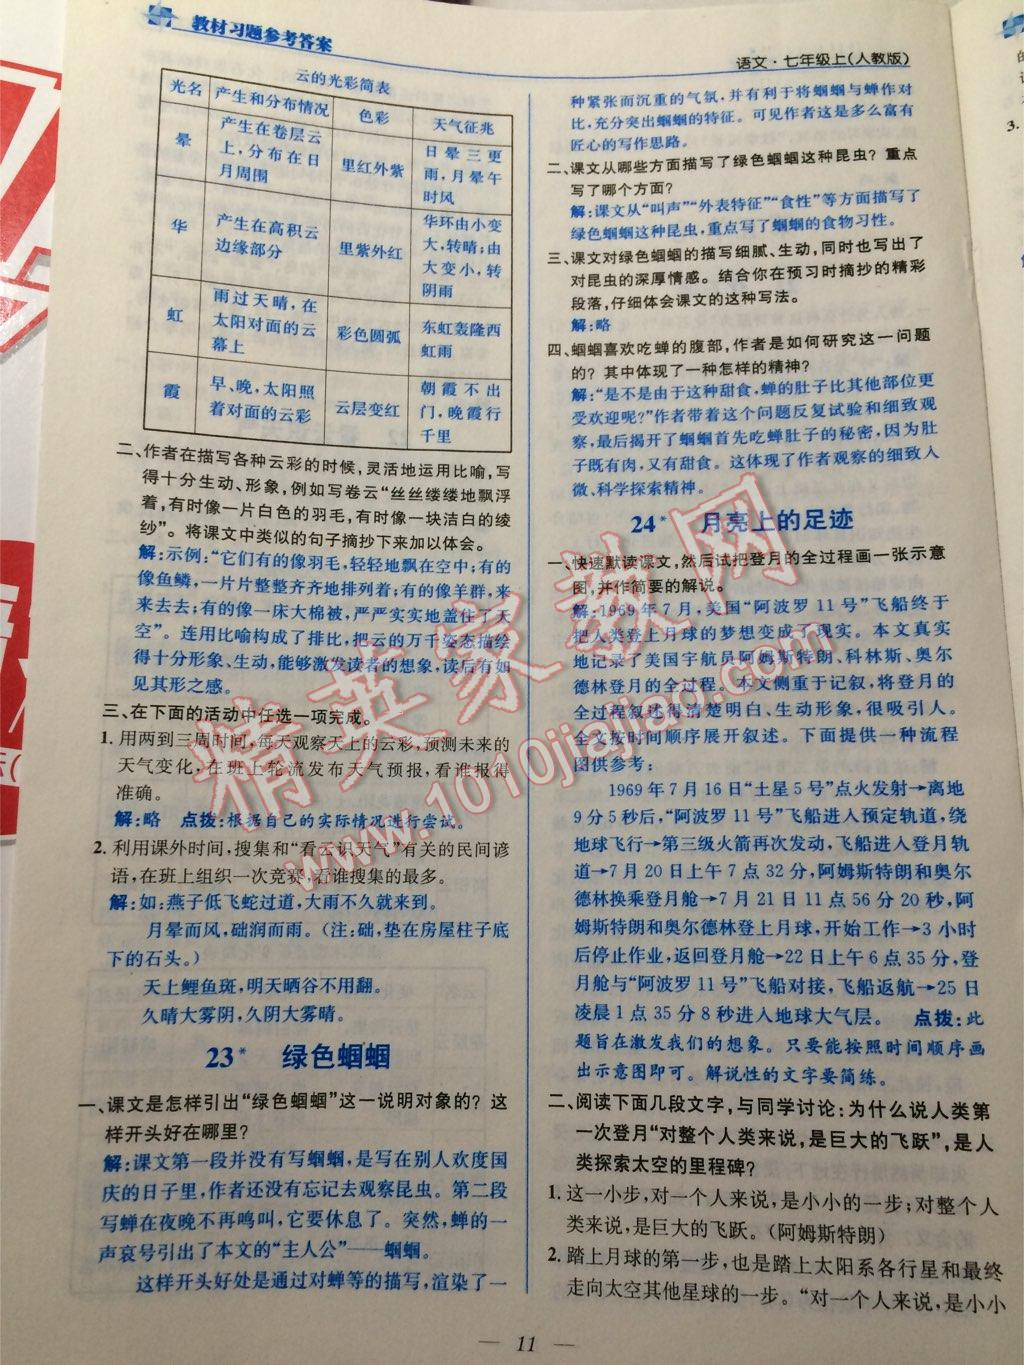 教材习题参考答案
语文·七年级上(人教版)
云的光彩简表
光名 产生和分布情况 色彩 天气征兆
晕 产生在卷层云上,分布在日月周围 里红外紫 日晕三更雨,月晕午时风
华 产生在高积云边缘部分 里紫外红 华环由小变大,转晴;由大变小,转阴雨
虹 雨过天晴,在太阳对面的云幕上 彩色圆弧 东虹轰隆西虹雨
霞 早、晚,太阳照着对面的云彩 云层变红 朝霞不出门,晚霞行千里
二、作者在描写各种云彩的时候,灵活地运用比喻,写
得十分生动、形象,例如写卷云“丝丝缕缕地飘浮
着,有时像一片白色的羽毛,有时像一块洁白的绫
纱”。将课文中类似的句子摘抄下来加以体会。
解:示例:“它们有的像羽毛,轻轻地飘在空中;有的
像鱼鳞,一片片整整齐齐地排列着;有的像羊群,来
来去去;有的像一床大棉被,严严实实地盖住了天
空”。连用比喻构成了排比,把云的万千姿态描绘
得十分形象、生动,能够激发读者的想象,读后有如
见其形之感。
三、在下面的活动中任选一项完成。
1. 用两到三周时间,每天观察天上的云彩,预测未来的
天气变化,在班上轮流发布天气预报,看谁报得
准确。
解:略 点拨:根据自己的实际情况进行尝试。
2. 利用课外时间,搜集和“看云识天气”有关的民间谚
语,在班上组织一次竞赛,看谁搜集的最多。
解:如:燕子低飞蛇过道,大雨不久就来到。
月晕而风,础润而雨。(注:础,垫在房屋柱子底
下的石头。)
天上鲤鱼斑,明天晒谷不用翻。
久晴大雾阴,久阴大雾晴。
23* 绿色蝈蝈
一、课文是怎样引出“绿色蝈蝈”这一说明对象的?这
样开头好在哪里?
解:课文第一段并没有写蝈蝈,是写在别人欢度国
庆的日子里,作者还没有忘记去观察昆虫。第二段
写蝉在夜晚不再鸣叫,它要休息了。突然,蝉的一
声哀号引出了本文的“主人公”——蝈蝈。
这样开头好处是通过对蝉等的描写,渲染了一
种紧张而沉重的气氛,并有利于将蝈蝈与蝉作对
比,充分突出蝈蝈的特征。可见作者这是多么富有
匠心的写作思路。
二、课文从哪些方面描写了绿色蝈蝈这种昆虫?重点
写了哪个方面?
解:课文从“叫声”“外表特征”“食性”等方面描写了
绿色蝈蝈这种昆虫,重点写了蝈蝈的食物习性。
三、课文对绿色蝈蝈的描写细腻、生动,同时也写出了
对昆虫的深厚情感。结合你在预习时摘抄的精彩
段落,仔细体会课文的这种写法。
解:略
四、蝈蝈喜欢吃蝉的腹部,作者是如何研究这一问题
的?其中体现了一种怎样的精神?
解:“是不是由于这种甜食,蝉的肚子比其他部位更
受欢迎呢?”作者带着这个问题反复试验和细致观
察,最后揭开了蝈蝈首先吃蝉肚子的秘密,因为肚
子既有肉,又有甜食。这体现了作者观察的细致入
微、科学探索精神。
24* 月亮上的足迹
一、快速默读课文,然后试把登月的全过程画一张示意
图,并作简要的解说。
解:1969年7月,美国“阿波罗11号”飞船终于
把人类登上月球的梦想变成了现实。本文真实
地记录了美国宇航员阿姆斯特朗、科林斯、奥尔
德林登月的全过程。本文侧重于记叙,将登月的
全过程叙述得清楚明白、生动形象,很吸引人。
全文按时间顺序展开叙述。下面提供一种流程
图供参考:
1969年7月16日“土星5号”点火发射→离地
9分5秒后,“阿波罗11号”飞船进入预定轨道,绕
地球飞行→第三级火箭再次发动,飞船进入登月轨
道→7月20日上午7点32分,阿姆斯特朗和奥尔
德林换乘登月舱→7月21日11点56分20秒,阿
姆斯特朗和奥尔德林登上月球,开始工作→3小时
后停止作业,返回登月舱→22日上午6点35分,登
月舱与“阿波罗11号”飞船对接,飞船返航→25日
凌晨1点35分8秒进入地球大气层。 点拨:此
题旨在激发我们的想象。只要能按照时间顺序画
出示意图即可。解说性的文字要简练。
二、阅读下面几段文字,与同学讨论:为什么说人类第
一次登月“对整个人类来说,是巨大的飞跃”,是人
类探索太空的里程碑?
1. 这一小步,对一个人来说,是小小的一步;对整个人
类来说,是巨大的飞跃。(阿姆斯特朗)
2. 踏上月球的第一步,也是踏上太阳系各行星和最终
走向太空其他星球的一步。“对一个人来说,是小小
— 11 —
3.
精英家教网
www.1010jiajiao.com